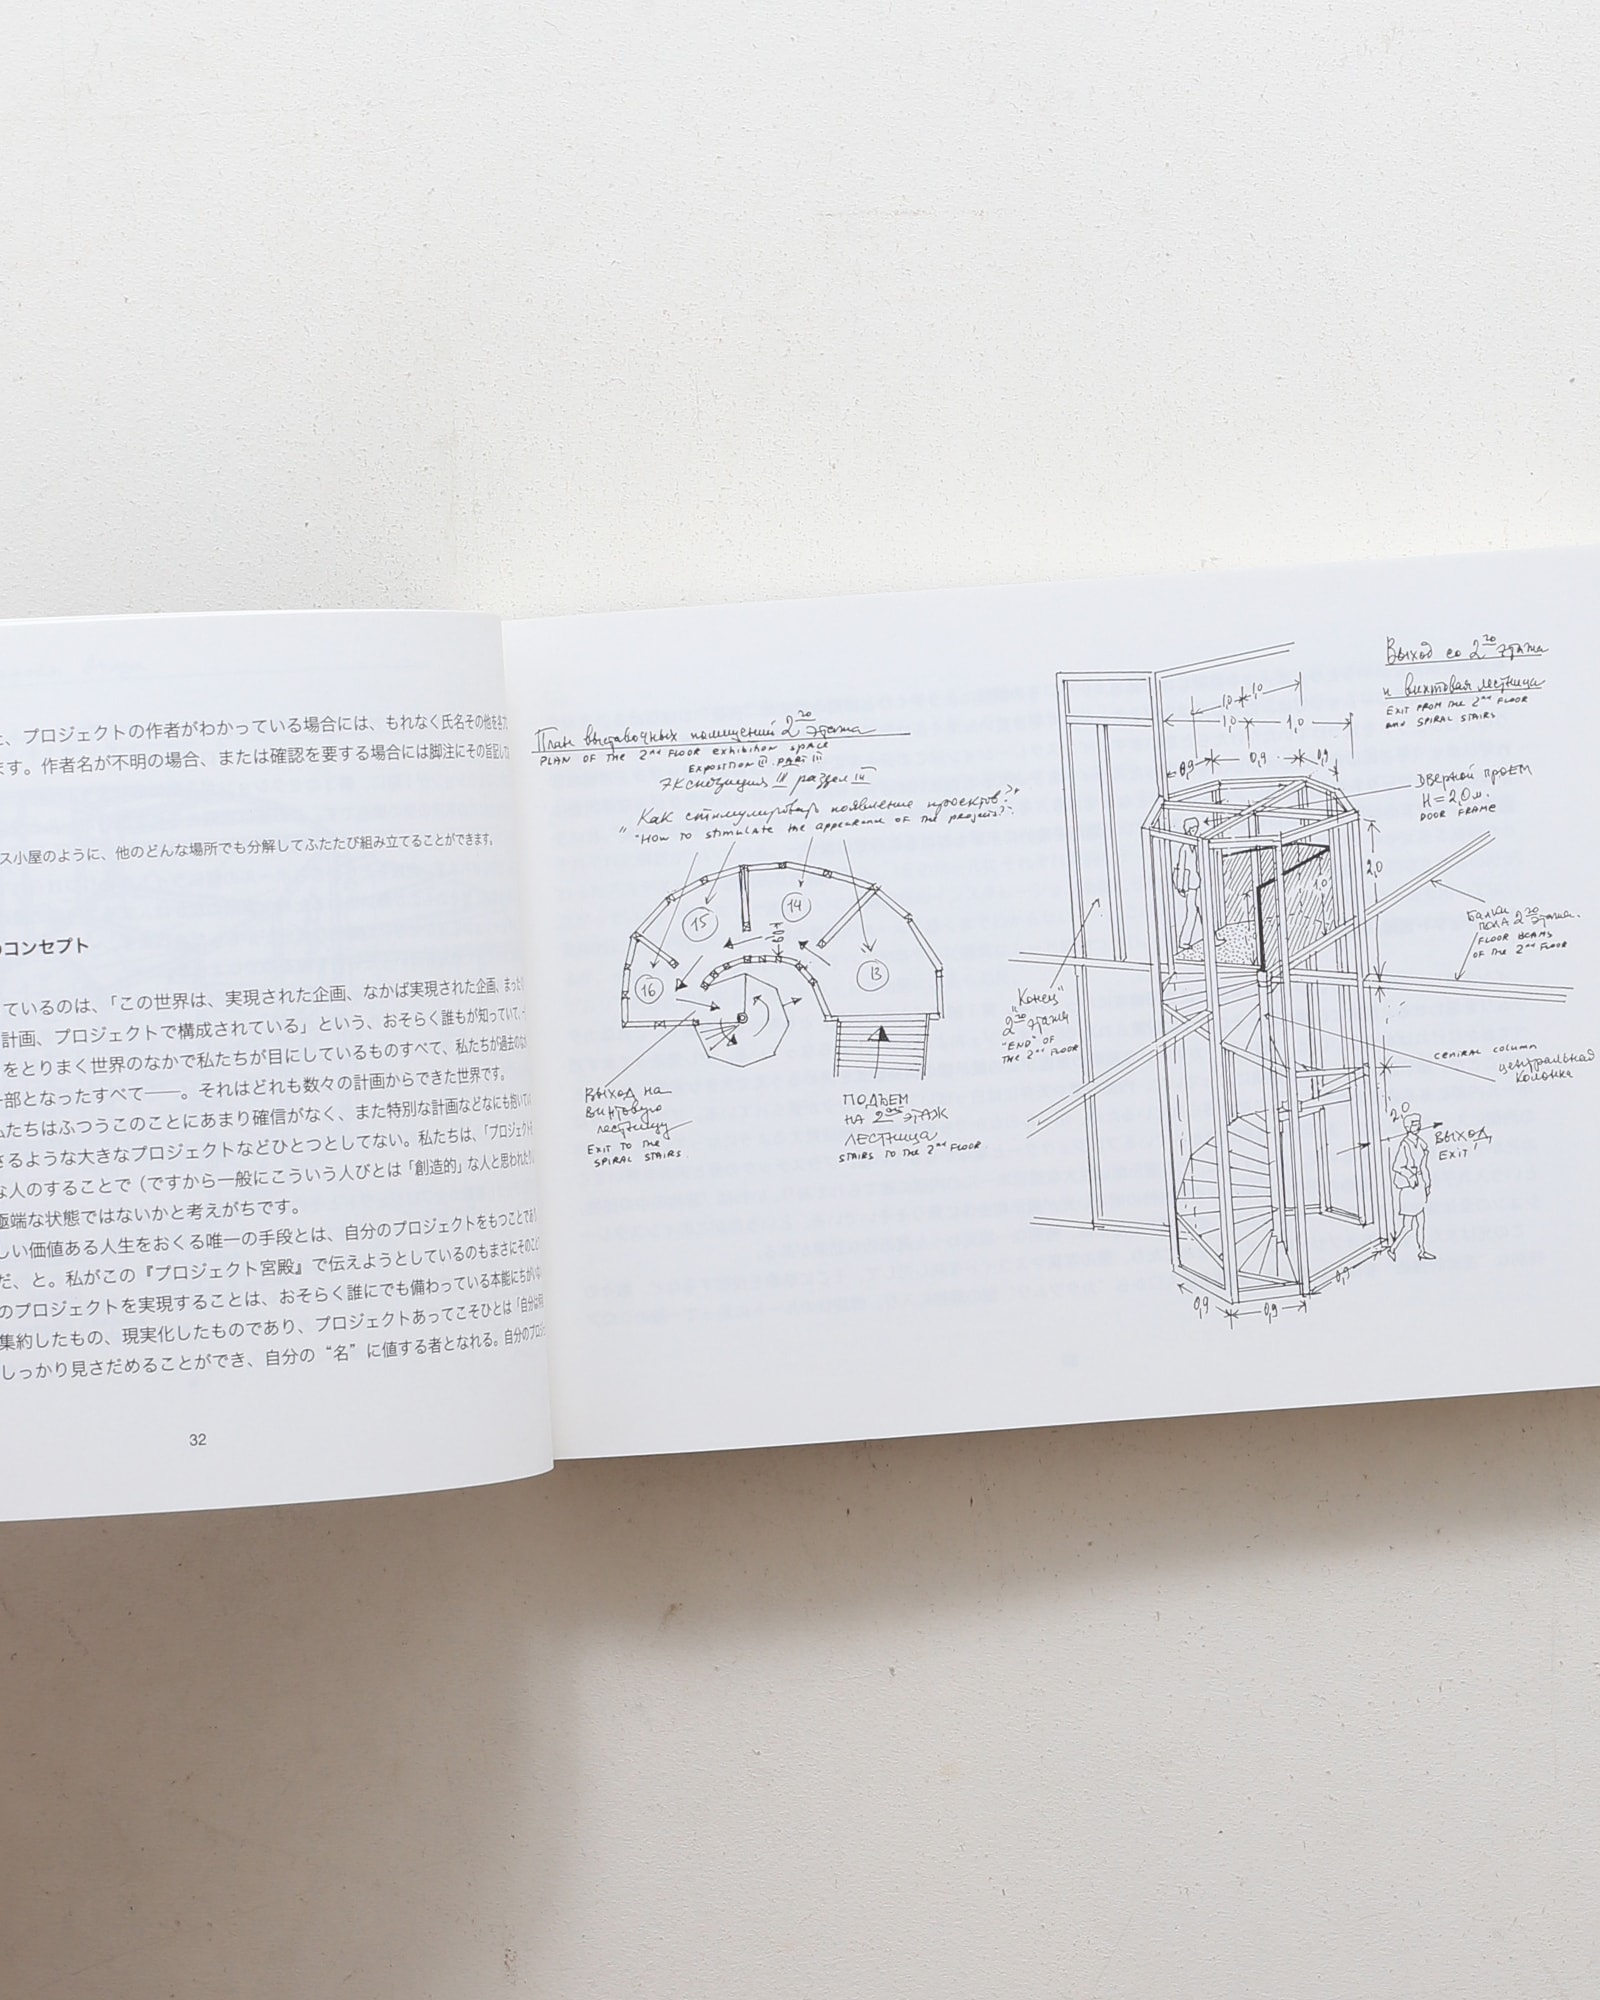 、プロジェクトの作者がわかっている場合には、もれなく氏名その他を
ます。作者名が不明の場合、または確認を要する場合には脚注にその旨記して
ス小屋のように、他のどんな場所でも分解してふたたび組み立てることができます。
コンセプト
ているのは、「この世界は、実現された企画、なかば実現された企画、まった
計画、プロジェクトで構成されている」という、おそらく誰もが知っていて、
をとりまく世界のなかで私たちが目にしているものすべて、私たちが過去の
部となったすべて――。それはどれも数々の計画からできた世界です。
たちはふつうこのことにあまり確信がなく、また特別な計画などなにも抱いて
さるような大きなプロジェクトなどひとつとしてない。私たちは、「プロジェクトを
な人のすることで（ですから一般にこういう人びとは「創造的」な人と思われたり
極端な状態ではないかと考えがちです。
しい価値ある人生をおくる唯一の手段とは、自分のプロジェクトをもつことであり
だ、と。私がこの『プロジェクト宮殿』で伝えようとしているのもまさにそのこと
のプロジェクトを実現することは、おそらく誰にでも備わっている本能にちがいない
集約したもの、現実化したものであり、プロジェクトあってこそひとは「自分は何者
しっかり見さだめることができ、自分の“名”に値する者となれる。自分のプロジェ
32
План выставочных помещений 2го этажа
PLAN OF THE 2nd FLOOR exhibition space
EXPOSITION II PART III
Экспозиция II раздел III
"Как стимулировать появление проектов?"
"How to stimulate the appearance of the projects?"
15
14
60
16
13
Выход на
винтовую
лестницу
EXIT TO THE
SPIRAL STAIRS.
ПОДЪЕМ
НА 2ой ЭТАЖ
ЛЕСТНИЦА
STAIRS TO THE 2nd FLOOR.
Выход со 2го этажа
и винтовая лестница
EXIT FROM THE 2nd FLOOR
and SPIRAL STAIRS
1,0 1,0
1,0 1,0
0,9 0,9 0,9
Дверной проем
H = 2,0 м.
DOOR FRAME
2,0
1,0
Балки
пола 2го этажа.
FLOOR BEAMS
OF THE 2nd FLOOR
"Конец"
2го этажа
"END" OF
THE 2nd FLOOR
CENTRAL column
центральная
колонна
2,0
Выход
EXIT
0,9 0,9 0,9